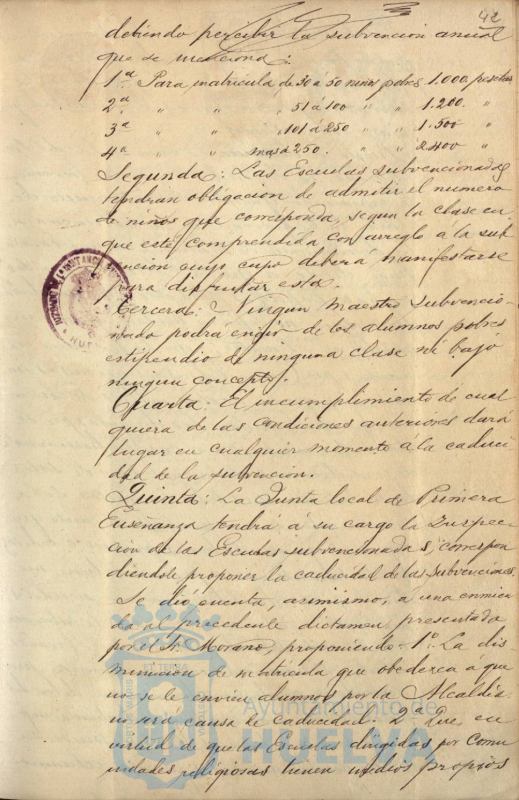 42
debiendo percibir la subvencion anual
que se menciona:
1ª Para matricula de 30 a 50 niños pobres 1.000. pesetas
2ª " " " 51 á 100 " " 1.200. "
3ª " " " 101 á 250 " " 1.500 "
4ª " " mas de 250. " " 2.400 "
Segunda: Las Escuelas subvencionadas
tendran obligacion de admitir el numero
de niños que corresponda, segun la clase en
que esté comprendida con arreglo a la sub
vencion cuyo cupo deberá manifestarse
para disfrutar esta.
Tercera: Ningun maestro subvencio-
nado podrá exigir de los alumnos pobres
estipendio de ninguna clase ni bajo
ningun concepto.
Cuarta: El incumplimiento de cual
quiera de las condiciones anteriores dará
lugar en cualquier momento á la caduci
dad de la subvencion.
Quinta: La Junta local de Primera
Enseñanza tendrá á su cargo la Inspec-
cion de las Escuelas subvencionadas, correspon
diendole proponer la caducidad de las subvenciones.
Se dió cuenta, asimismo, a una enmien
da al precedente dictamen, presentada
por el Sr. Morano, proponiendo - 1º. La dis-
minucion de matricula que obedezca a que
no se le envien alumnos por la Alcaldia
no será causa de caducidad. 2º Que, en
virtud de que las Escuelas dirigidas por Comu
nidades religiosas tienen medios propios
Ayuntamiento de
HUELVA